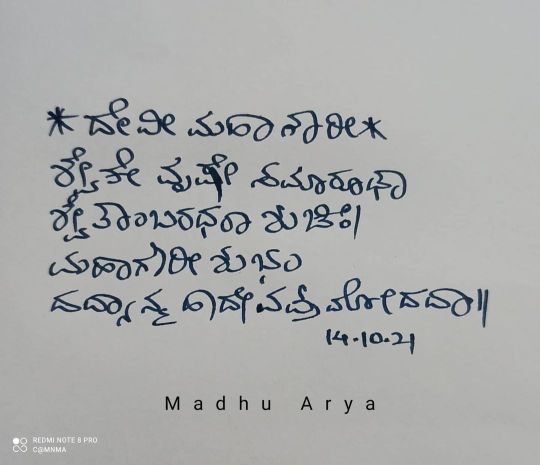 *ದೇವೀ ಮಹಾಗೌರೀ*
ಶ್ವೇತೇ ವೃಷೇ ಸಮಾರೂಢಾ
ಶ್ವೇತಾಂಬರಧರಾ ಶುಚಿಃ|
ಮಹಾಗೌರೀ ಶುಭಂ
ದದ್ಯಾನ್ಮಹಾದೇವಪ್ರಮೋದದಾ||
14.10.21
Madhu Arya
REDMI NOTE 8 PRO
C@MNMA